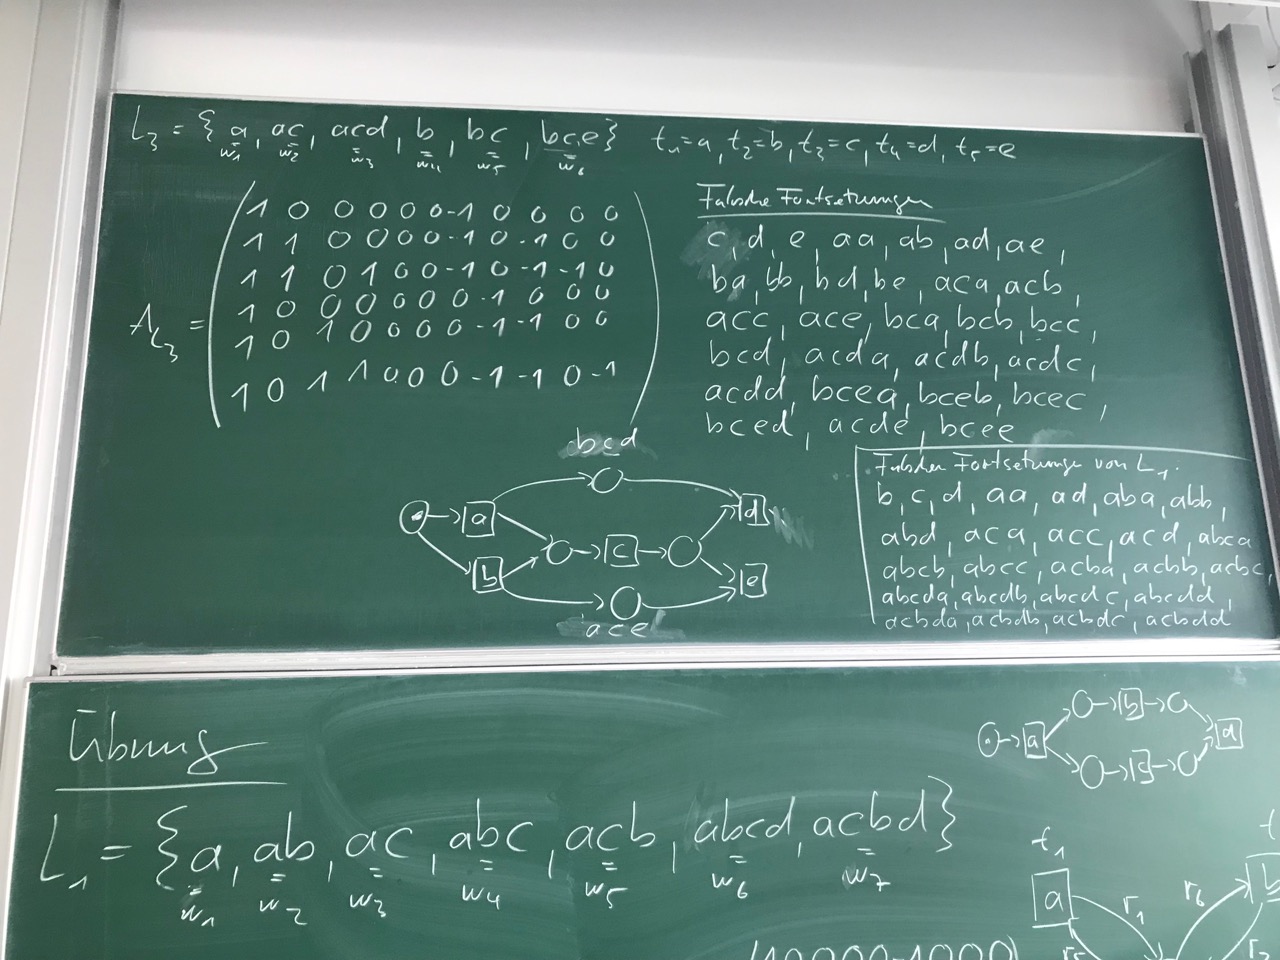 L₃ = {a, ac, acd, b, bc, bce} t₁=a, t₂=b, t₃=c, t₄=d, t₅=e
w₁ w₂ w₃ w₄ w₅ w₆
A_L₃ =
1 0 0 0 0 0 -1 0 0 0 0
1 1 0 0 0 0 -1 0 -1 0 0
1 1 0 1 0 0 -1 0 -1 -1 0
1 0 0 0 0 0 0 -1 0 0 0
1 0 1 0 0 0 0 -1 -1 0 0
1 0 1 1 0 0 0 -1 -1 0 -1
Falsche Fortsetzungen
c, d, e, aa, ab, ad, ae,
ba, bb, bd, be, aca, acb,
acc, ace, bca, bcb, bcc,
bcd, acda, acdb, acdc,
acdd, bcea, bceb, bcec,
bced, acde, bcee
bcd
a d
c
b e
ace
Falsche Fortsetzunge von L₁.
b, c, d, aa, ad, aba, abb,
abd, aca, acc, acd, abca
abcb, abcc, acba, acbb, acbc,
abcda, abcdb, abcdc, abcdd,
acbda, acbdb, acbdc, acbdd
Übung
b
a d
c
L₁ = {a, ab, ac, abc, acb, abcd, acbd}
w₁ w₂ w₃ w₄ w₅ w₆ w₇
t₁
a r₁ r₆ b